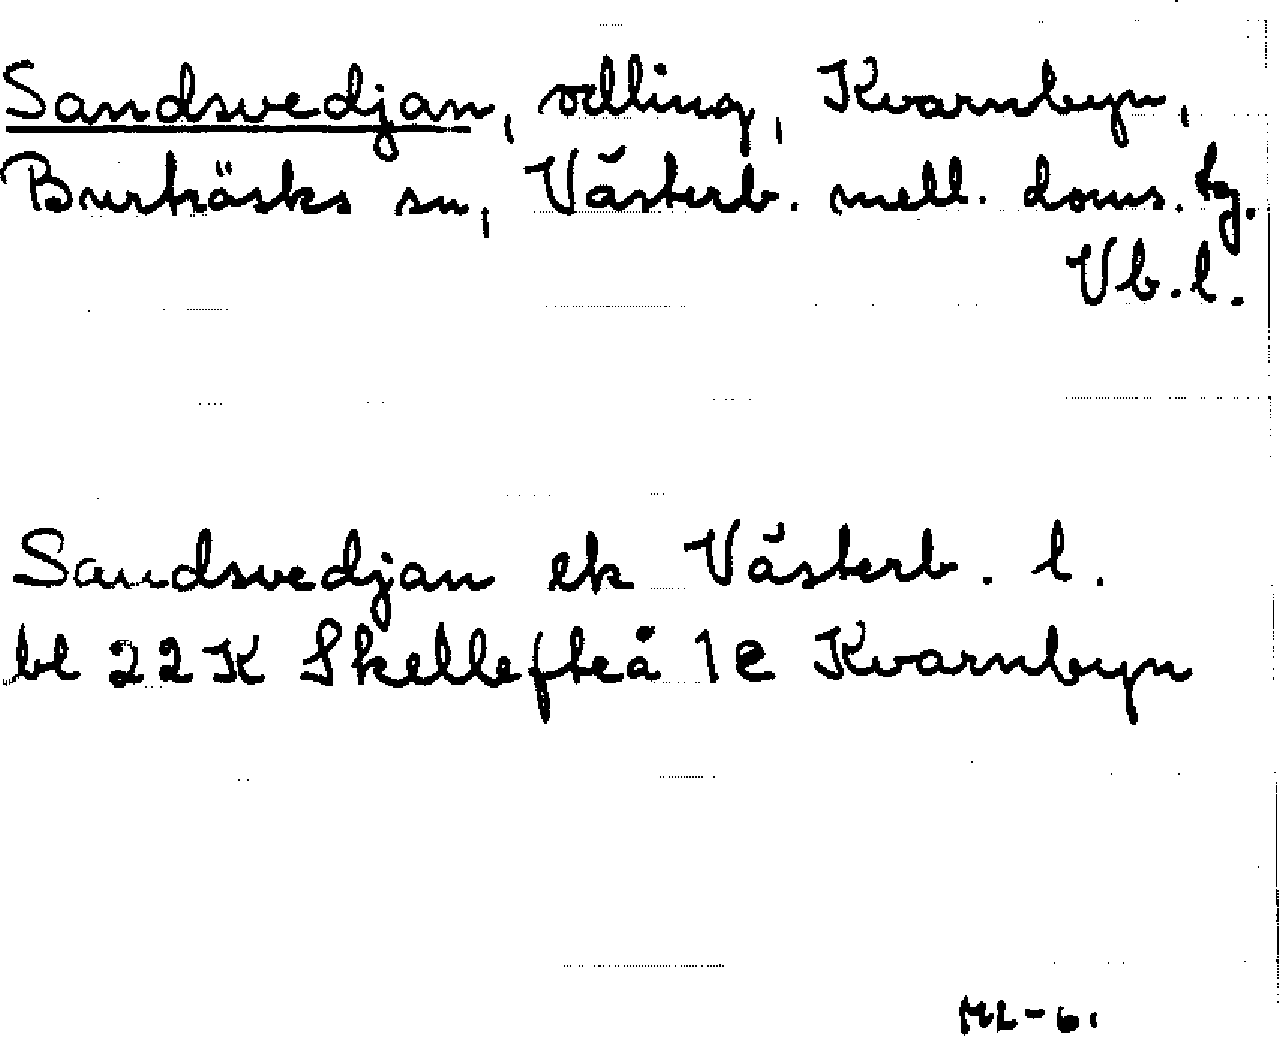 Sandsvedjan, odling, Kvarnbyn,
Burträsks sn, Västerb. mell. doms. tg.
Vb.l.
Sandsvedjan ek Västerb. l.
bl 22K Skellefteå 1e Kvarnbyn